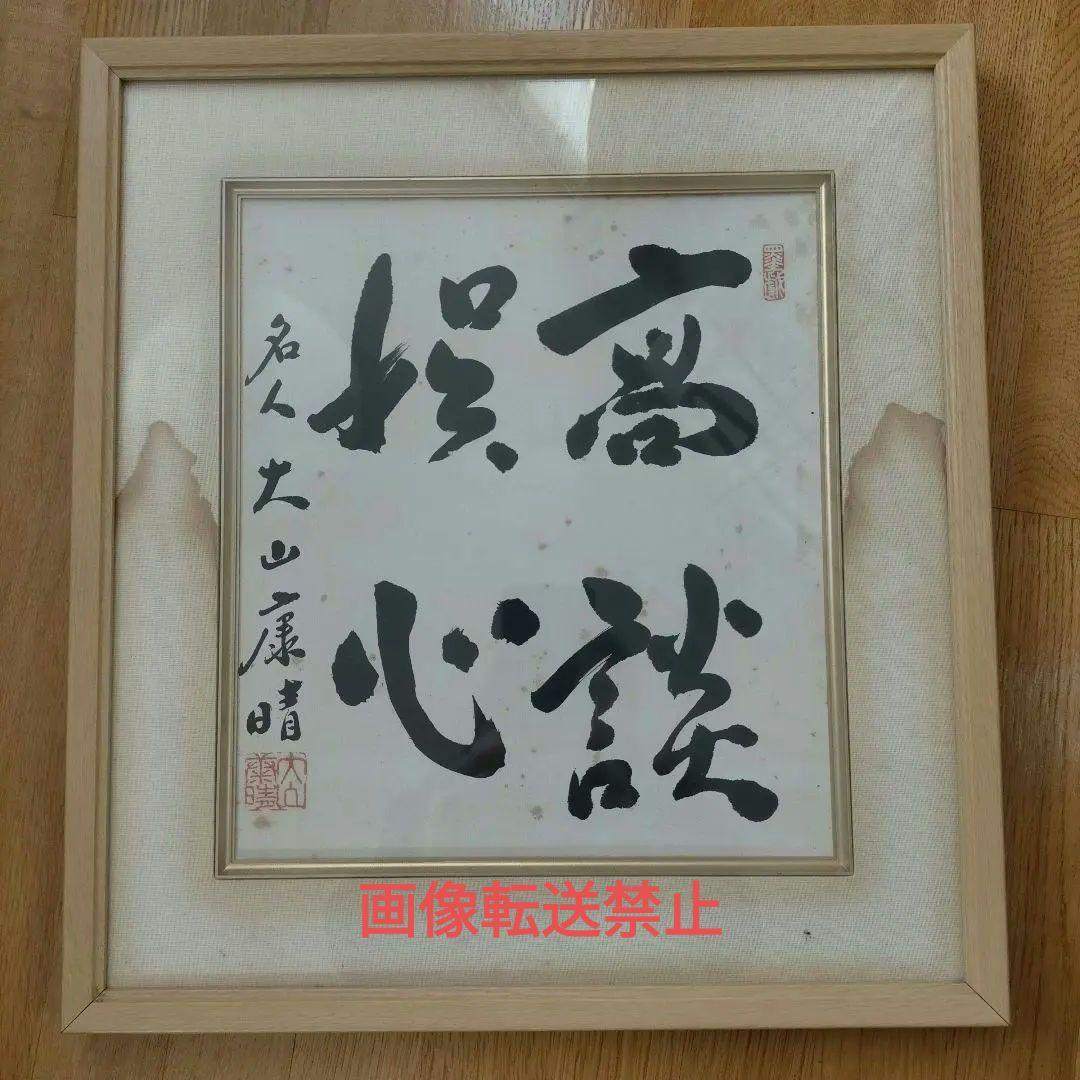 高談
娯心
名人大山康晴
大山康晴
画像転送禁止